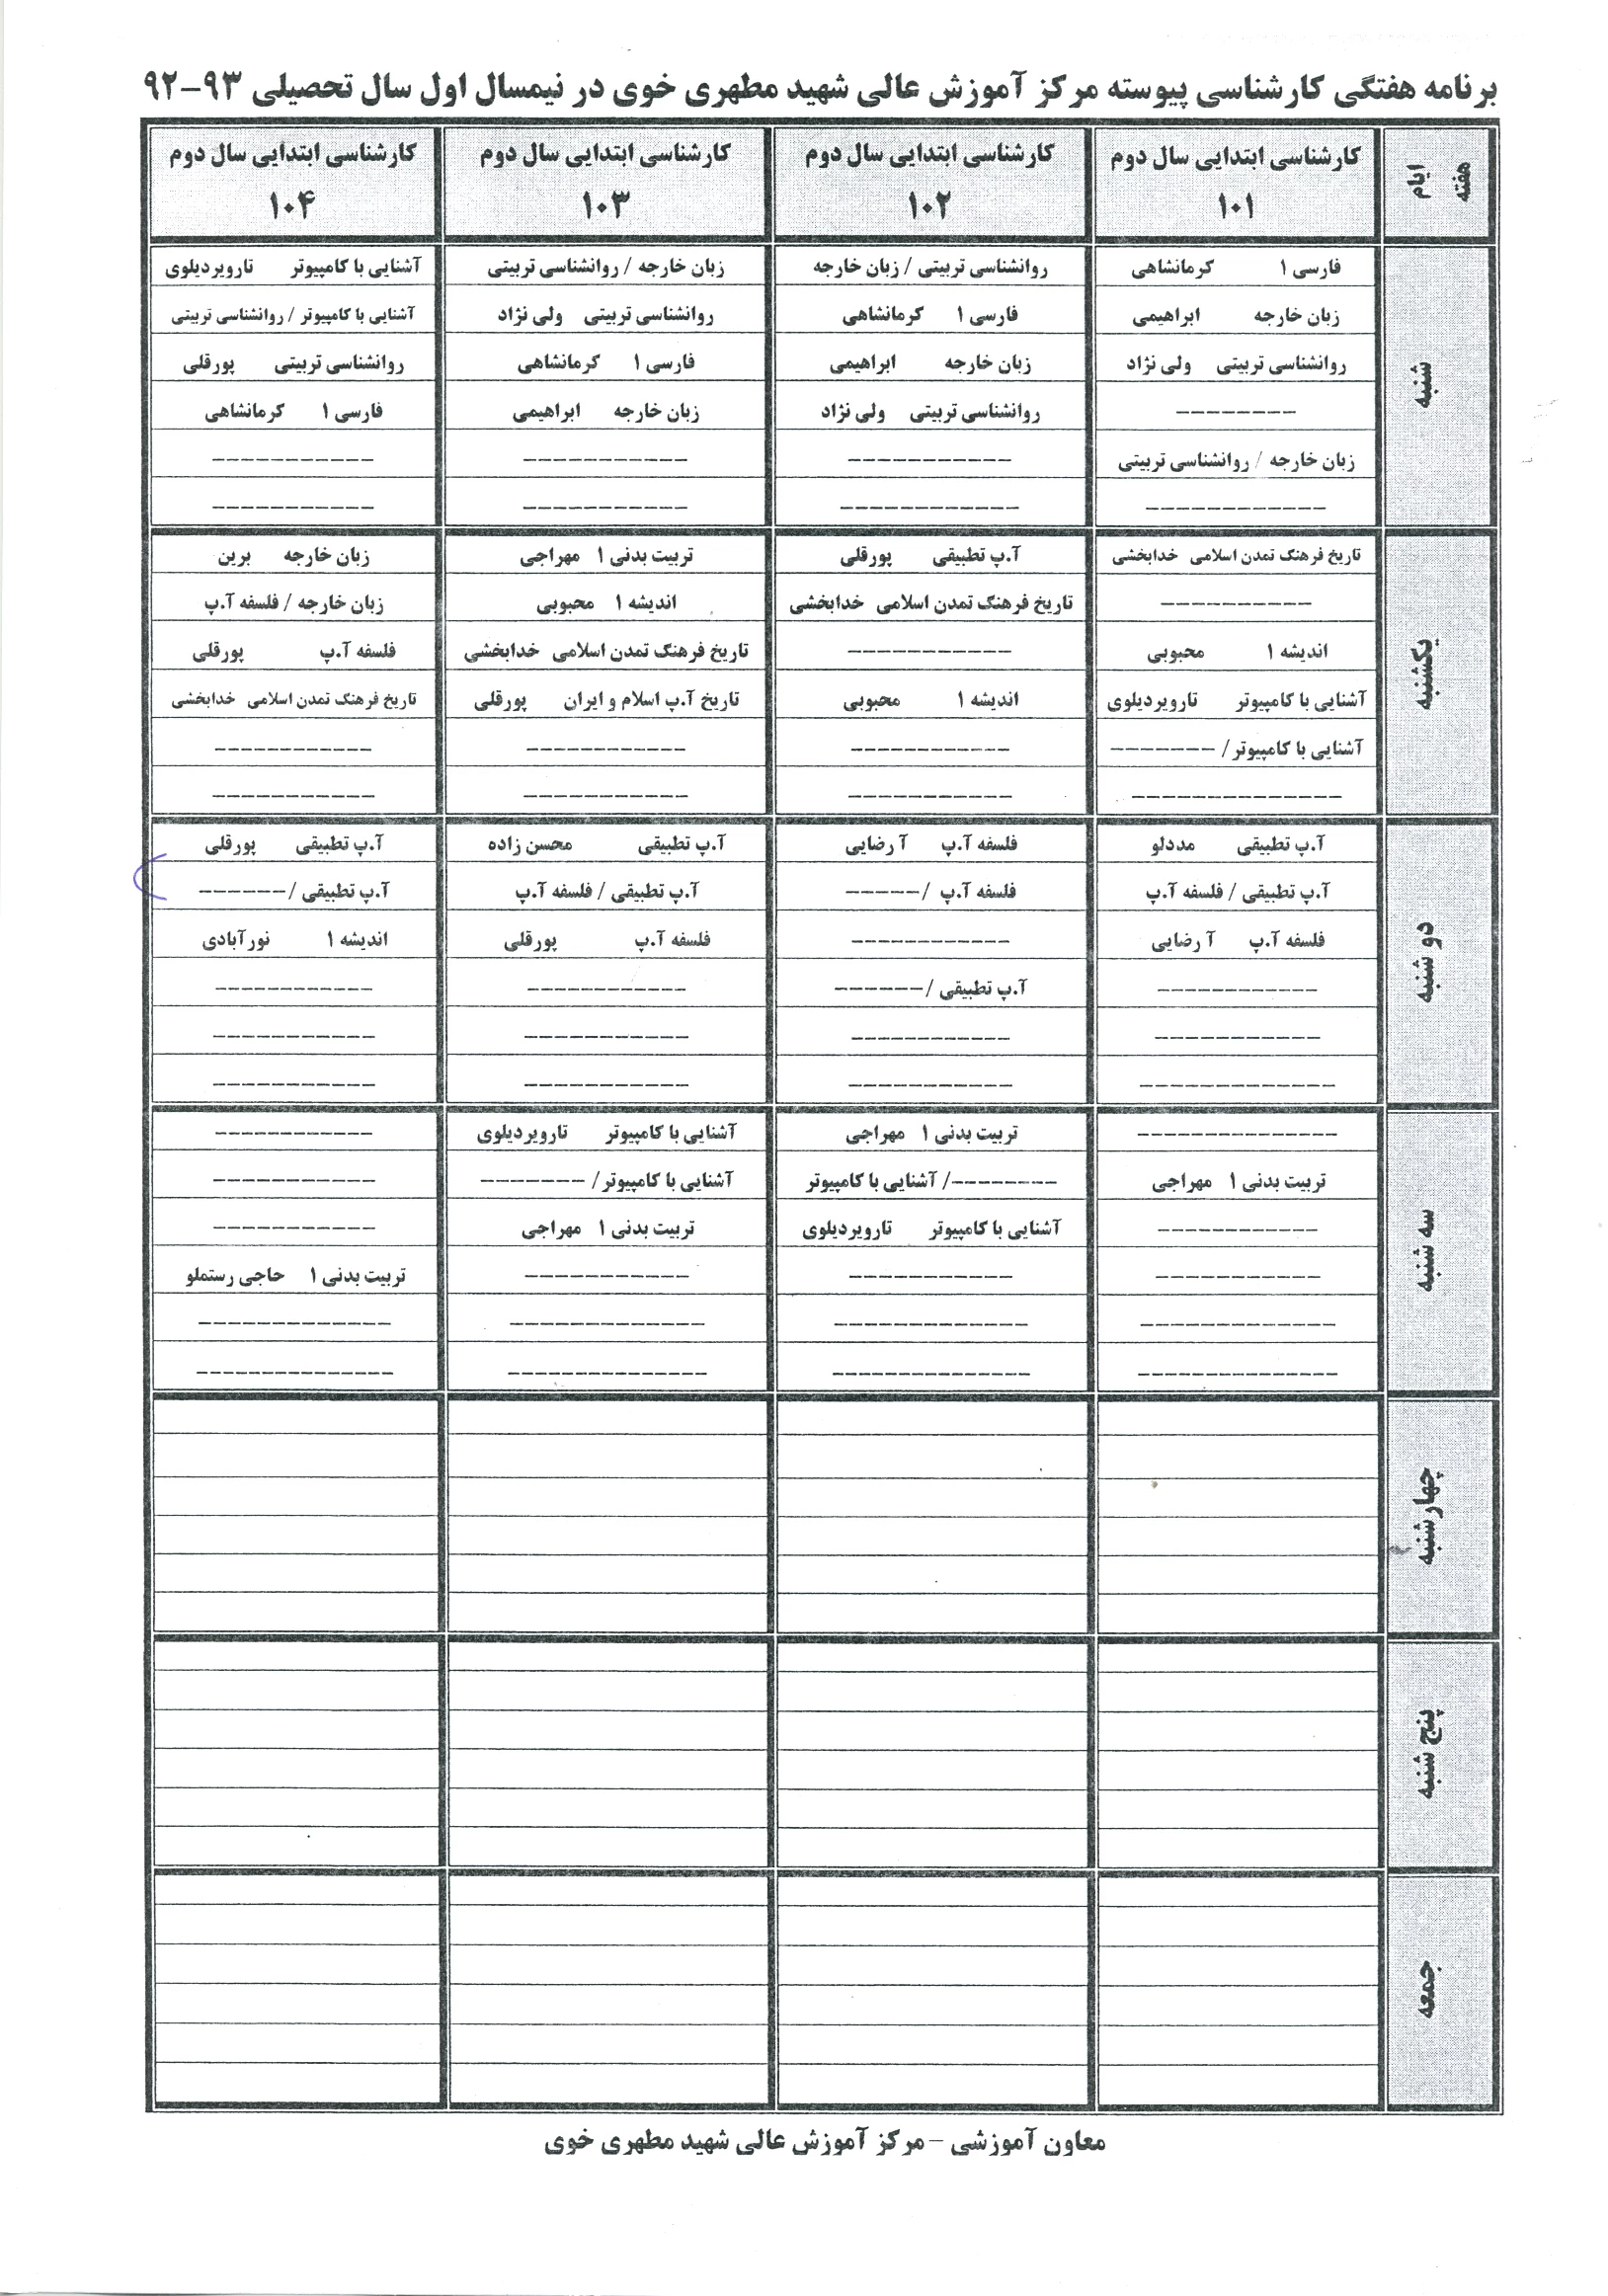 برنامه هفتگی کارشناسی پیوسته مرکز آموزش عالی شهید مطهری خوی در نیمسال اول سال تحصیلی ۹۳-۹۲
ایام هفته	کارشناسی ابتدایی سال دوم ۱۰۱	کارشناسی ابتدایی سال دوم ۱۰۲	کارشناسی ابتدایی سال دوم ۱۰۳	کارشناسی ابتدایی سال دوم ۱۰۴
شنبه
فارسی ۱ کرمانشاهی	روانشناسی تربیتی / زبان خارجه	زبان خارجه / روانشناسی تربیتی	آشنایی با کامپیوتر تارویردیلوی
زبان خارجه ابراهیمی	فارسی ۱ کرمانشاهی	روانشناسی تربیتی ولی نژاد	آشنایی با کامپیوتر / روانشناسی تربیتی
روانشناسی تربیتی ولی نژاد	زبان خارجه ابراهیمی	فارسی ۱ کرمانشاهی	روانشناسی تربیتی پورقلی
--------	روانشناسی تربیتی ولی نژاد	زبان خارجه ابراهیمی	فارسی ۱ کرمانشاهی
زبان خارجه / روانشناسی تربیتی	-----------	-----------	-----------
------------	------------	-----------	-----------
یکشنبه
تاریخ فرهنگ تمدن اسلامی خدابخشی	آ.پ تطبیقی پورقلی	تربیت بدنی ۱ مهراجی	زبان خارجه برین
----------	تاریخ فرهنگ تمدن اسلامی خدابخشی	اندیشه ۱ محبوبی	زبان خارجه / فلسفه آ.پ
اندیشه ۱ محبوبی	-----------	تاریخ فرهنگ تمدن اسلامی خدابخشی	فلسفه آ.پ پورقلی
آشنایی با کامپیوتر تارویردیلوی	اندیشه ۱ محبوبی	تاریخ آ.پ اسلام و ایران پورقلی	تاریخ فرهنگ تمدن اسلامی خدابخشی
آشنایی با کامپیوتر/ -------	-----------	-----------	-----------
--------------	-----------	-----------	-----------
دو شنبه
آ.پ تطبیقی مددلو	فلسفه آ.پ آ رضایی	آ.پ تطبیقی محسن زاده	آ.پ تطبیقی پورقلی
آ.پ تطبیقی / فلسفه آ.پ	فلسفه آ.پ /-----	آ.پ تطبیقی / فلسفه آ.پ	آ.پ تطبیقی /------
فلسفه آ.پ آ رضایی	-----------	فلسفه آ.پ پورقلی	اندیشه ۱ نورآبادی
-----------	آ.پ تطبیقی /------	-----------	-----------
-----------	-----------	-----------	-----------
-------------	-----------	-----------	-----------
سه شنبه
-------------	تربیت بدنی ۱ مهراجی	آشنایی با کامپیوتر تارویردیلوی	-----------
تربیت بدنی ۱ مهراجی	-------/ آشنایی با کامپیوتر	آشنایی با کامپیوتر/ -------	-----------
-----------	آشنایی با کامپیوتر تارویردیلوی	تربیت بدنی ۱ مهراجی	-----------
-----------	-----------	-----------	تربیت بدنی ۱ حاجی رستملو
-------------	-------------	-------------	-------------
-------------	-------------	-------------	-------------
چهارشنبه
پنج شنبه
جمعه
معاون آموزشی – مرکز آموزش عالی شهید مطهری خوی